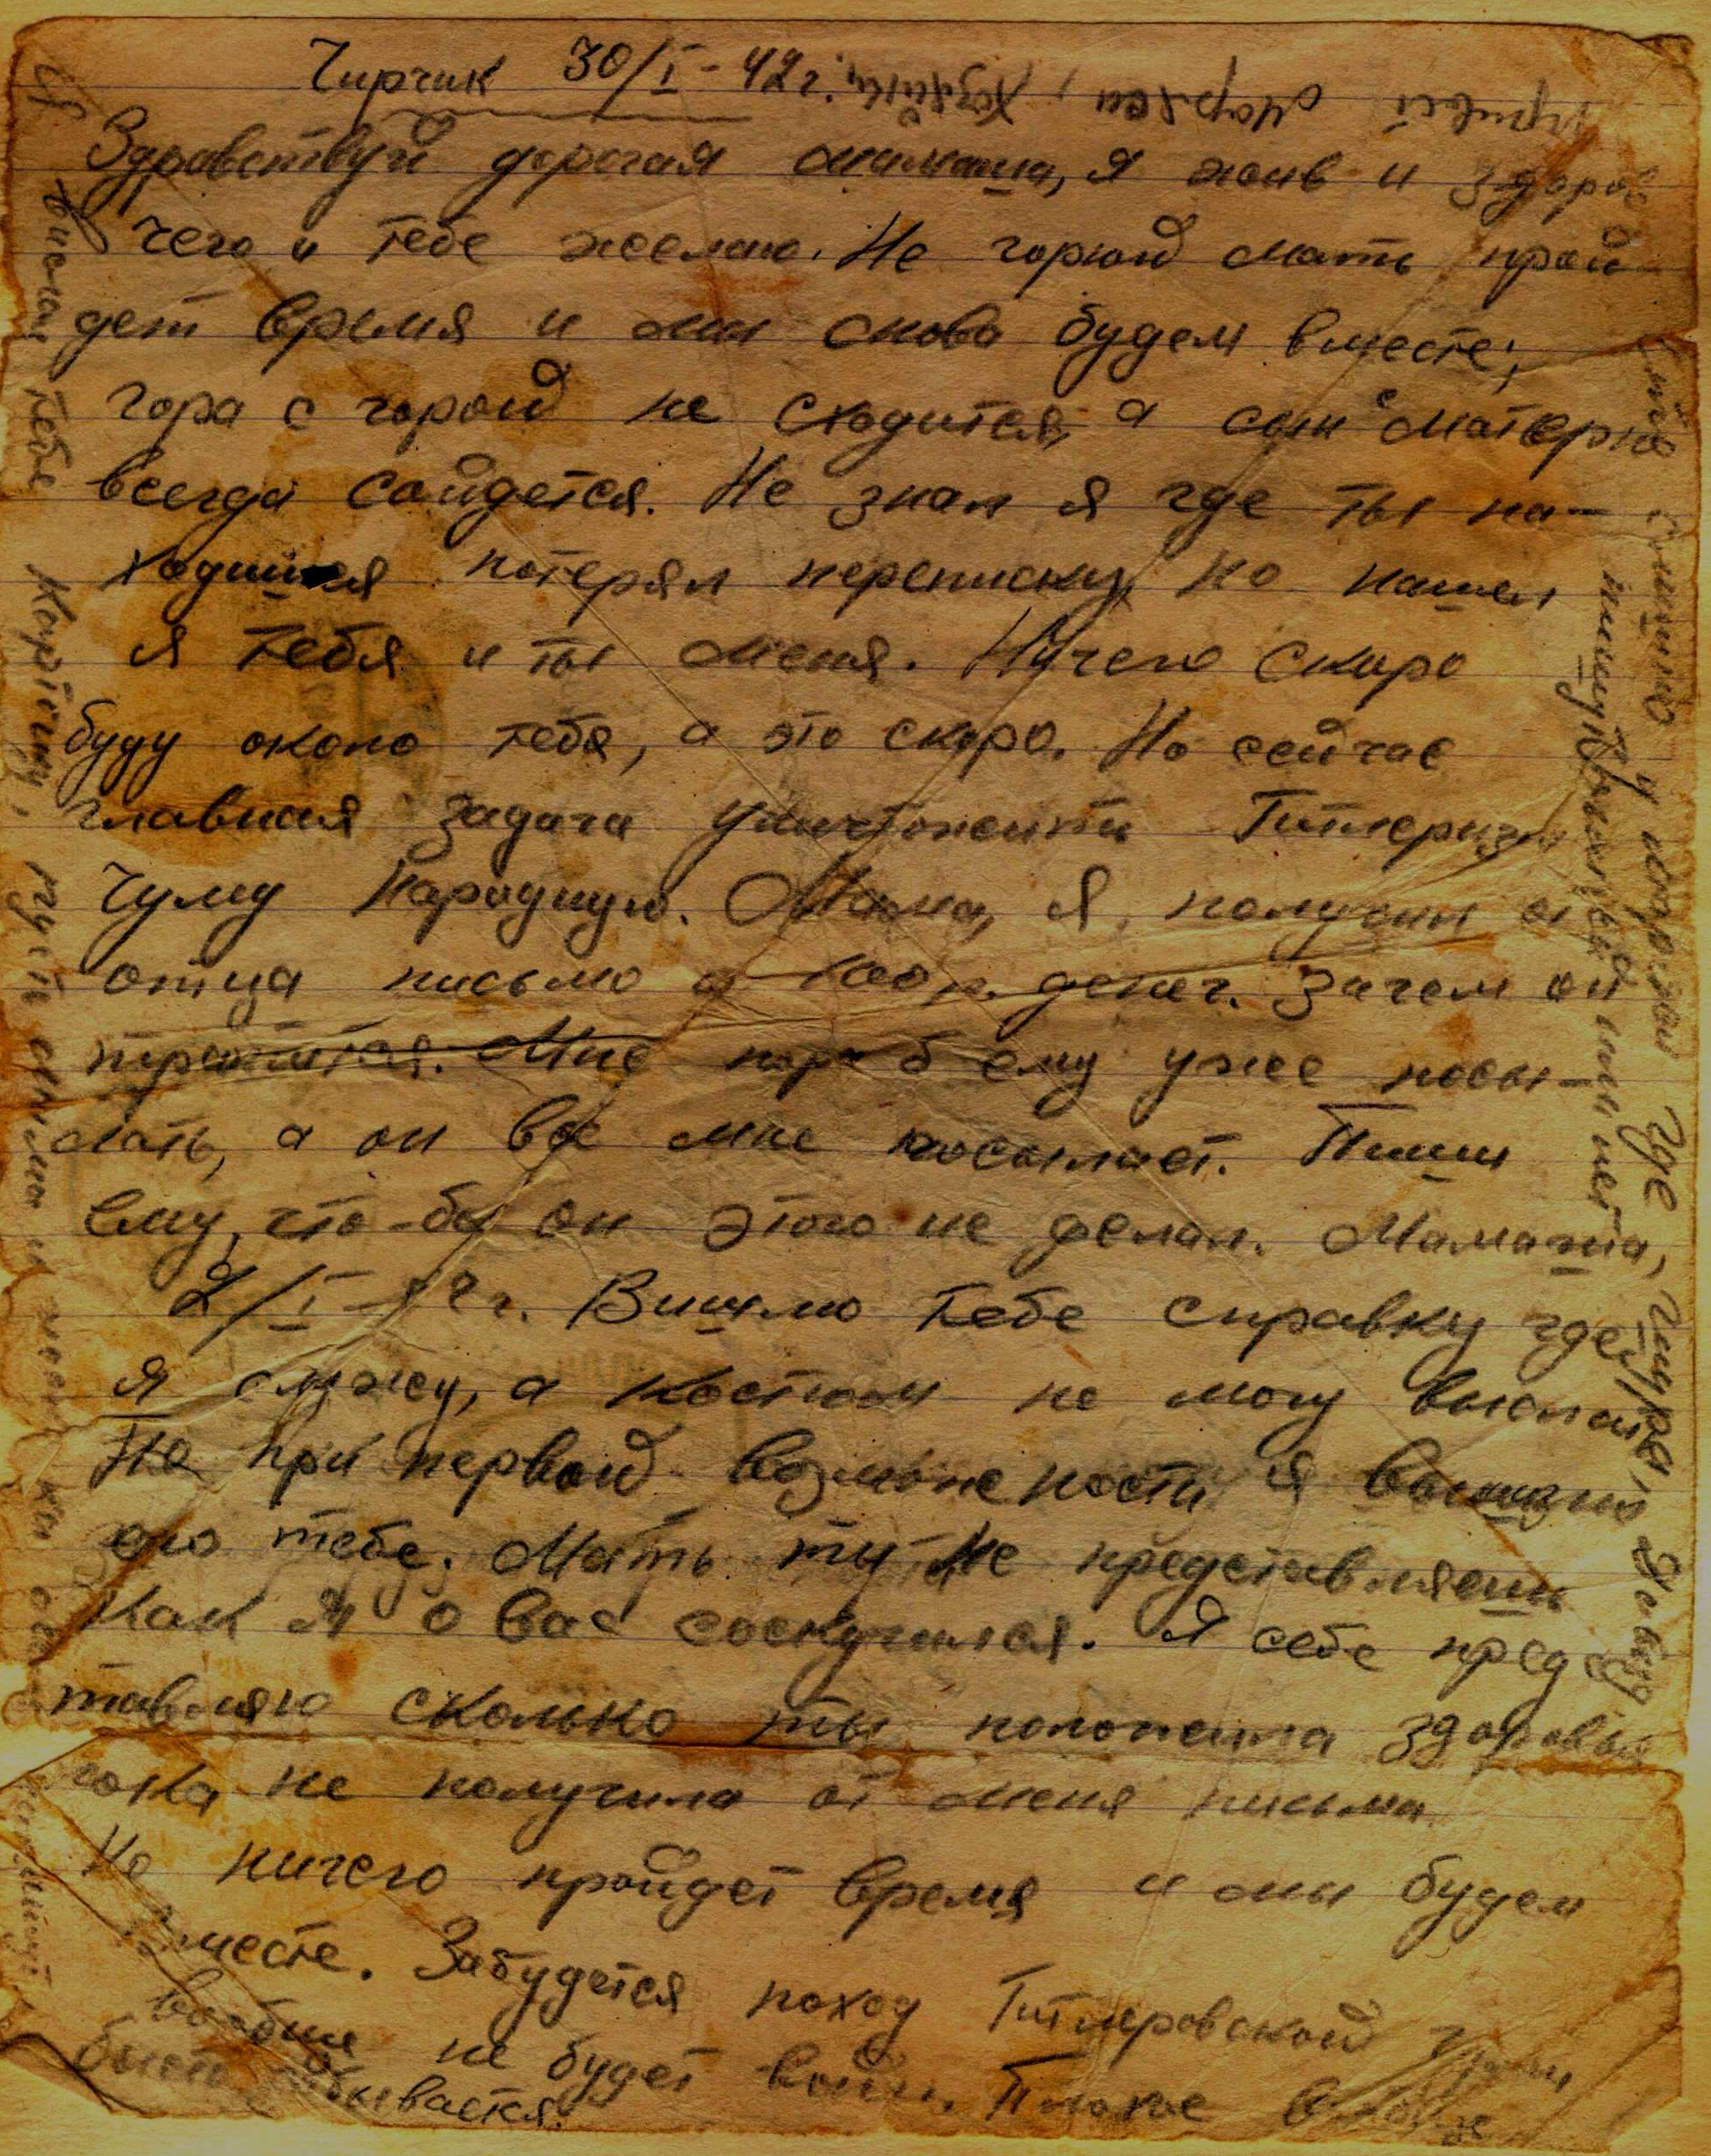 Чирчик 30/I-42г.
Здравствуй дорогая мамаша, я жив и здоров
чего и тебе желаю. Не горюй мать прой-
дет время и мы снова будем вместе;
гора с горой не сходится, а сын с матерью
всегда сойдется. Не знал я где ты на-
ходишся потерял переписку, но нашел
я тебя и ты меня. Ничего скоро
буду около тебя, а это скоро. Но сейчас
главная задача уничтожить Гитлеризм
Чуму Народную. Мама, я получил от
отца письмо и 100 р. денег. Зачем он
тратится. Мне пора б ему уже посы-
лать, а он все мне посылает. Пиши
ему, что-бы он этого не делал. Мамаша,
2/I-42г. Вишлю тебе справку где
я служу, а костюм не могу выслать
Но при первой возможности я вышлю
его тебе. Мать ти не представляешь
Как я о вас соскучился. Я себе предс
тавляю сколько ты положила здоровья
пока не получила от меня письма
Но ничего пройдет время и мы будем
вместе. Забудется поход Гитлеровской
вообще не будет войн. Плохое
быстро забывается.
привет Марлен, и
Хозяйки
Я вислал тебе Карточку, пусть
слышно о котором где Шура,
пишут